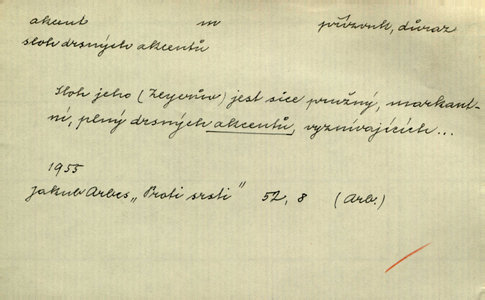 akcent m přízvuk, důraz
sloh drsných akcentů
Sloh jeho (Zeyerův) jest sice pružný, markant-
ní, plný drsných akcentů, vyznívajících...
1955
Jakub Arbes „Proti srsti" 52, 8 (Arb.)